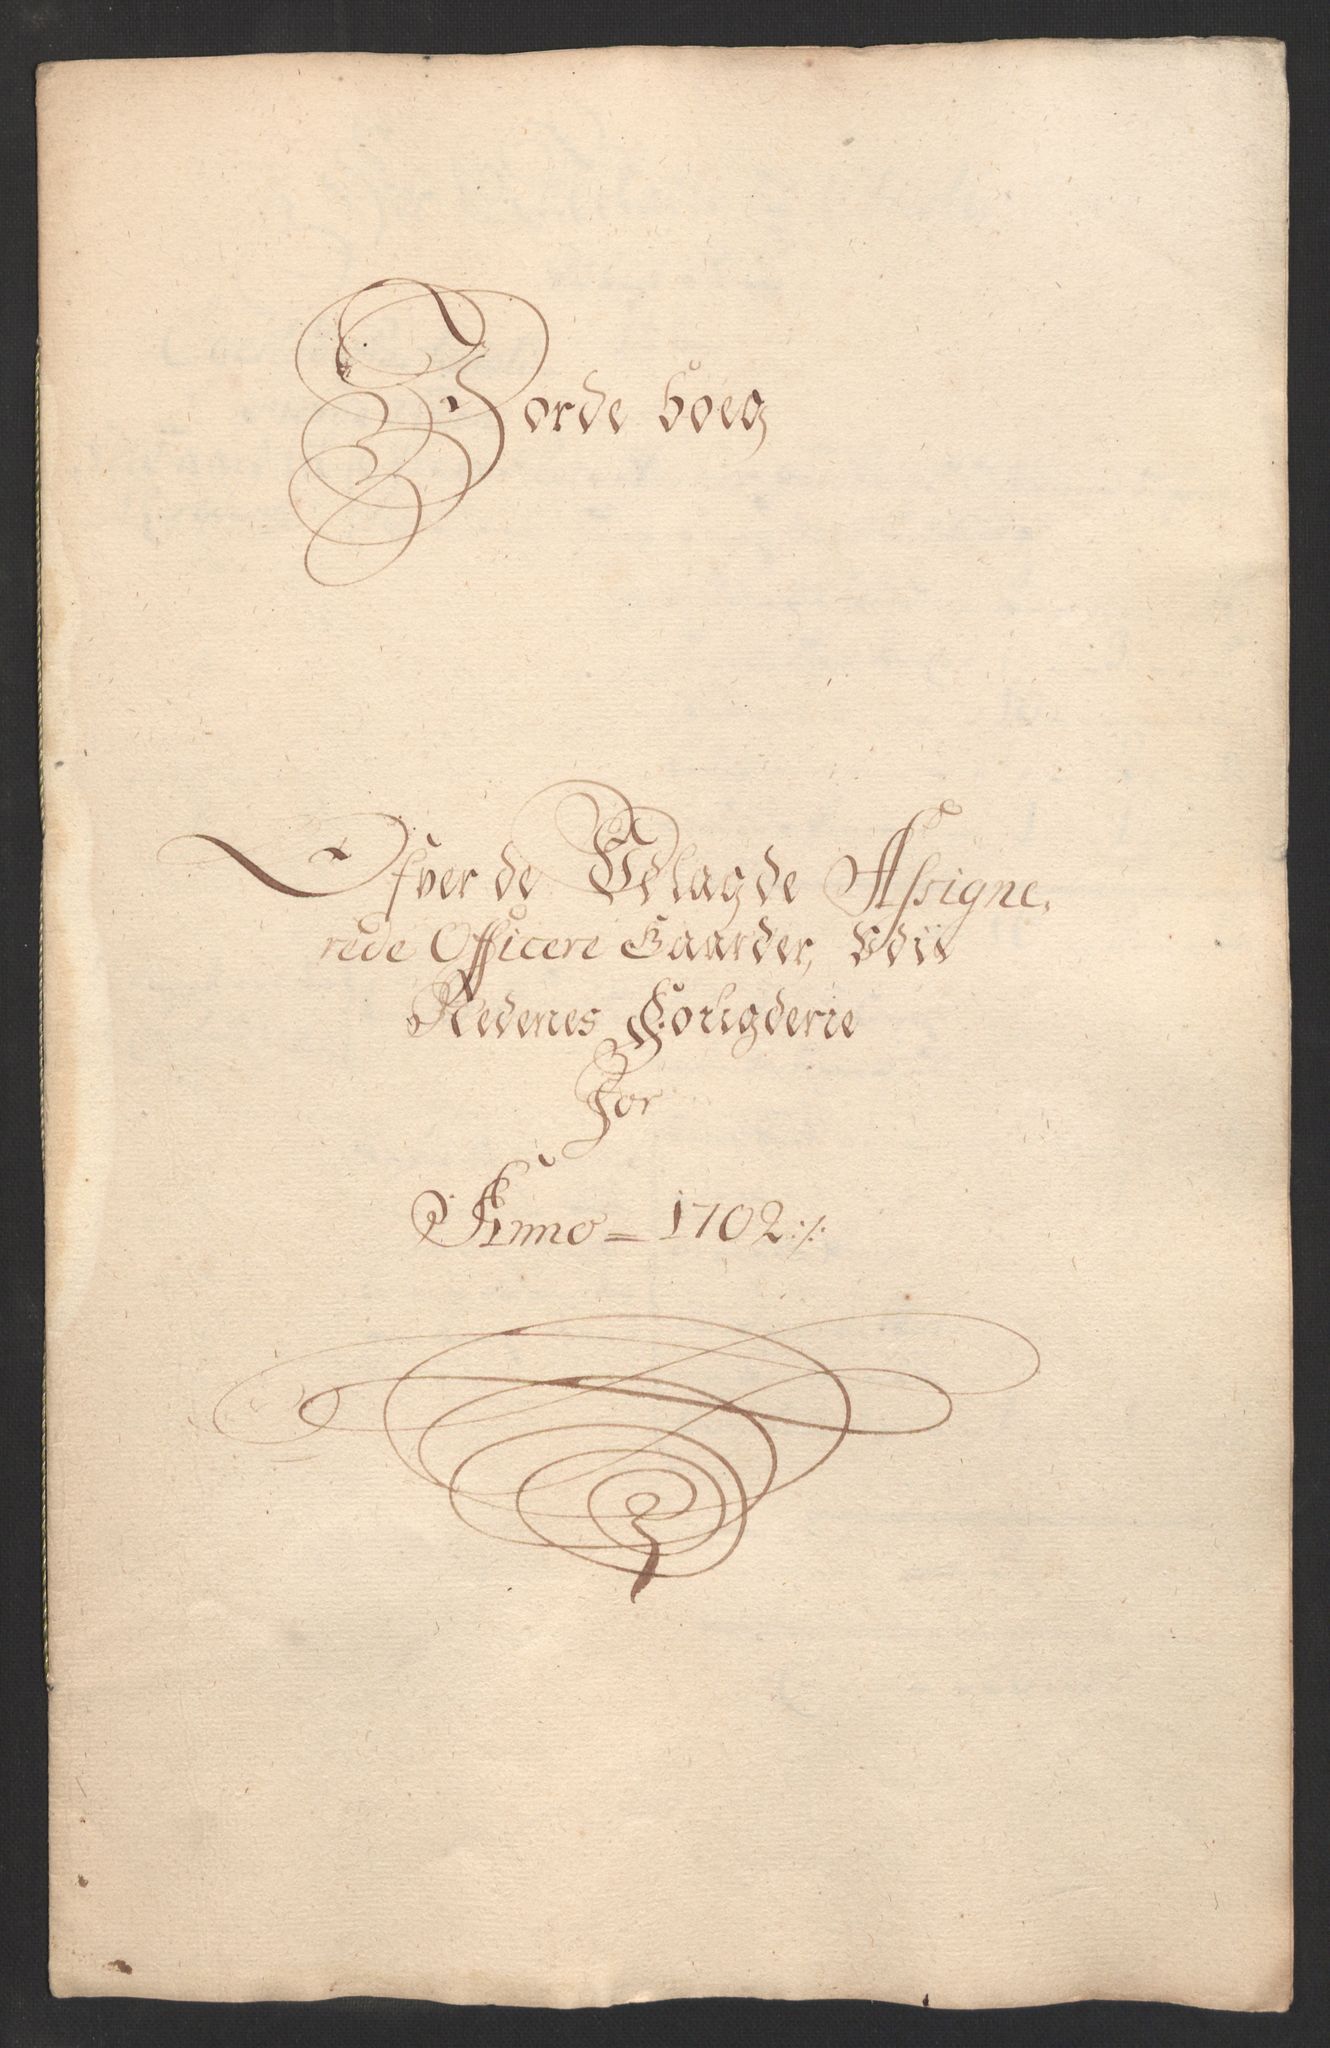 Jorde boeg
Ofver de Udlagde Assigne,
rede Officere Gaarder, Udii
Nedenes Fougderie
For
Anno = 1702 ·/·